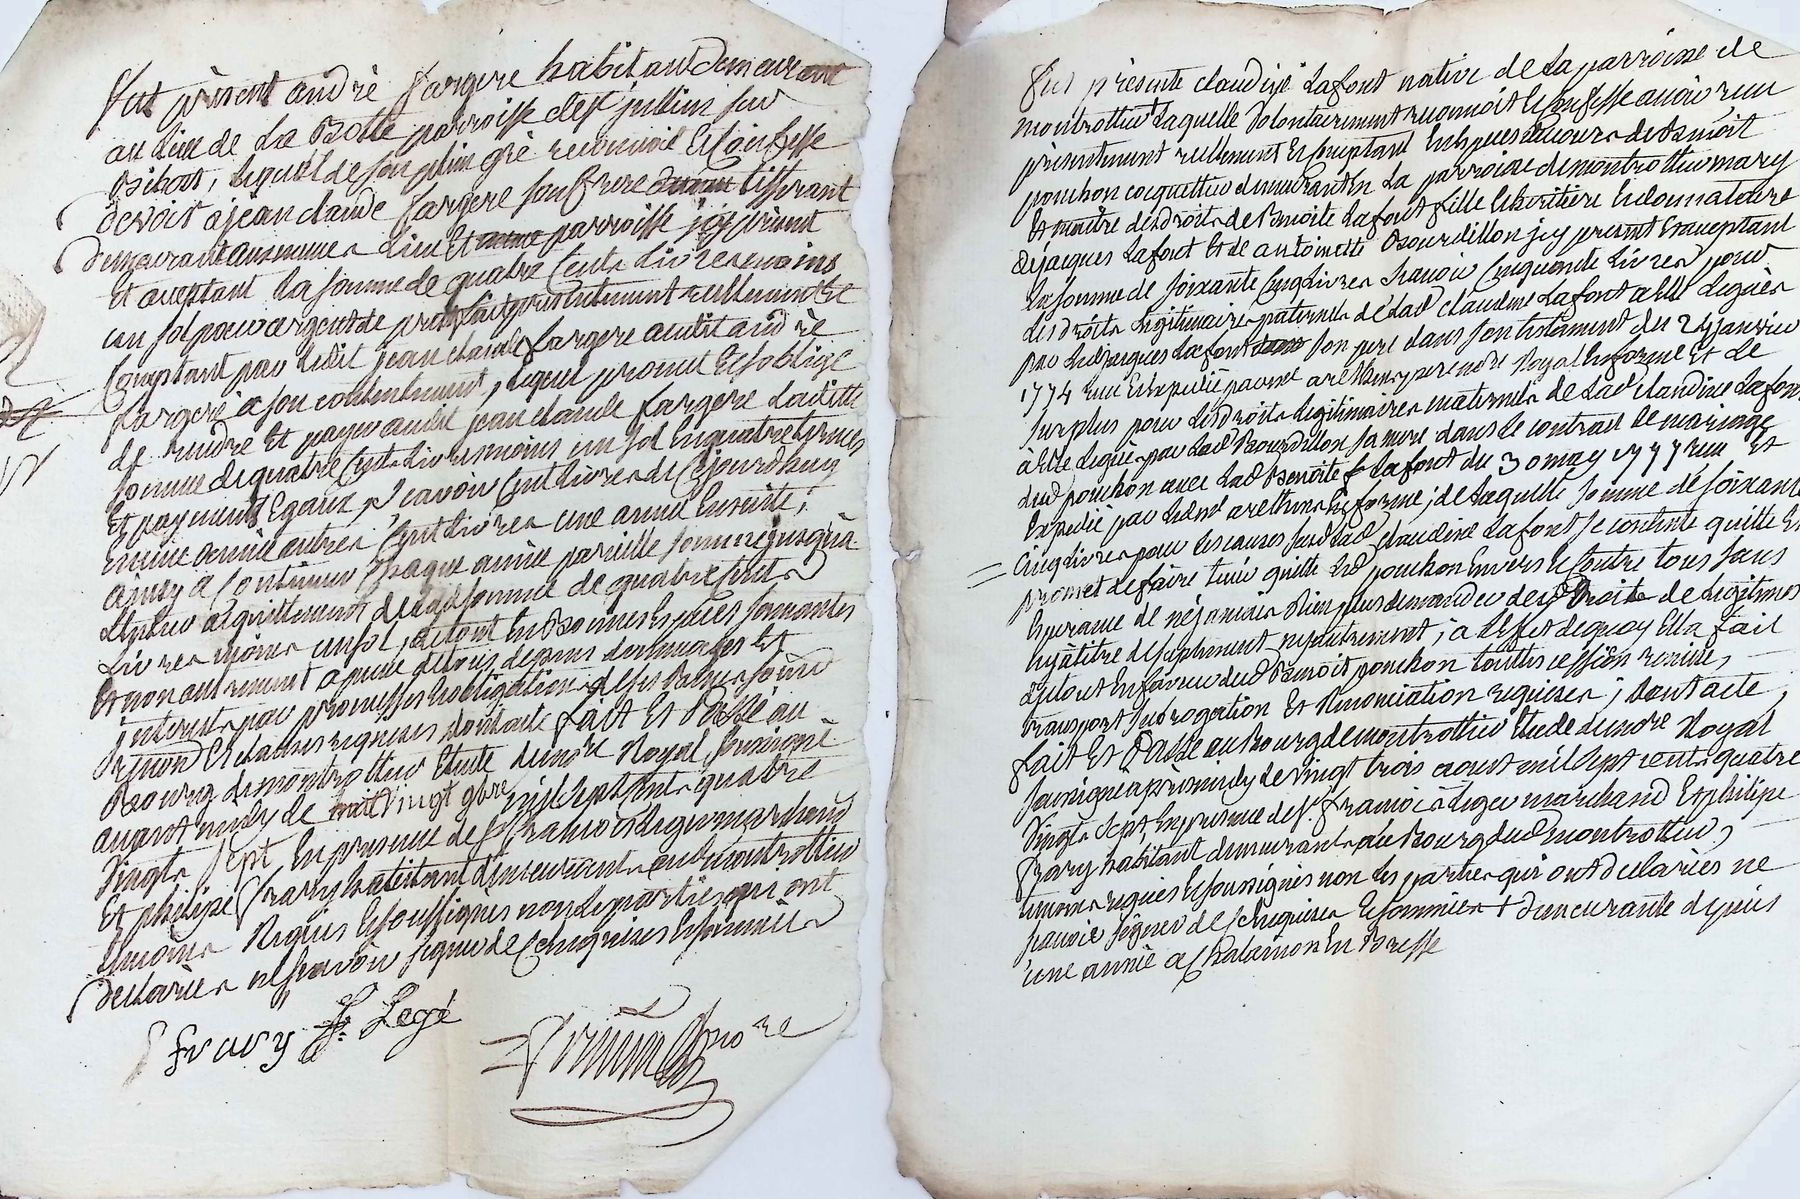 fut présent andré fargere habitant demeurant
au lieu de La Botte parroisse de st jullien sur
Bibost, lequel de son plein gré reconnoit & confesse
devoir a jean claude fargere son frere tisserant
demeurant au meme lieu et parroisse icy présent
et aceptant la somme de quatre cents livres moins
un sol pour argent de pret fait présentement réellement et
comptant par ledit jean claude fargere audit andré
fargere a son contentement, lequel promet et s'oblige
de rendre et payer audit jean claude fargere laditte
somme de quatre cents livres moins un sol en quatre termes
et payements Egaux, sçavoir cent livres de cejourdhuy
en une année autres cent livres une année Ensuite,
ainsy a Continuer chaque année pareille somme jusqu'à
L'entier aquittement de ladte somme de quatre cents
Livres moins un sol, le tout En bonnes Espèces sonnantes
et non autrement a peine de tous depens dommages et
interets par promesses obligation de ses biens soumon
renon et clauses requises dont acte fait et Passé au
Bourg de montrottier Etude du nore Royal soussigné
avant midy le vingt 9bre mil sept cents quatre
Vingts sept, En presence de sr francois Leger marchand
Et philipe frary habitant demeurants audt montrottier
temoins Requis & soussignés non les parties qui ont
declarées ne sçavoir signer de ce enquises & sommées
frary f. Legé
nore
fut présente claudine Lafont native de La parroisse de
montrottier Laquelle volontairement reconnoit & confesse avoir reçu
présentement reellement & comptant En Espèces de cours de Benoit
ponchon cocquettier demeurant En La parroisse de montrottier mary
Et maitre des droits de Benoite Lafont fille & heritiere & donnataire
de jacques Lafont et de antoinette Bourdillon icy present & aceptant
La somme de soixante cinq livres sçavoir cinquante Livres pour
Les droits Legitimaires paternels de Lad claudine Lafont a Elle Legués
par Led jacques Lafont son pere dans son testament du 24 janvier
1774 reçu & expedié par me arethens pere nore Royal En forme Et Le
surplus pour Les droits Legitimaires maternels de Lad claudine Lafont
à Elle Legués par Lad Bourdillon sa mere dans Le contrat de mariage
dud ponchon avec Lad Benoite Lafont du 30 may 1777 reçu Et
Expedié par Led me arethens En forme; de Laquelle somme de soixante
cinq Livres pour Les causes susd Lad claudine Lafont se contente quitte Et
promet de faire tenir quitte Led ponchon Envers & Contre tous sans
Esperance de n'en jamais Rien plus demander desd Droits de Legitimes
ny à titre de suplement ny autrement; a L'effet de quoy Elle fait
du tout En faveur dud Benoit ponchon touttes cession remise,
transport subrogation Et Renonciation requises; dont acte,
fait Et Passé au Bourg de montrottier Etude du nore Royal
soussigné après midy le vingt trois aoust mil sept cents quatre
Vingts Sept, En presence de sr francois Leger marchand Et philipe
frary habitant demeurants au Bourg dud montrottier,
temoins requis & soussignés non Les parties qui ont declarées ne
sçavoir signer de ce enquises & sommées + demeurante depuis
une année a chalamon En Bresse